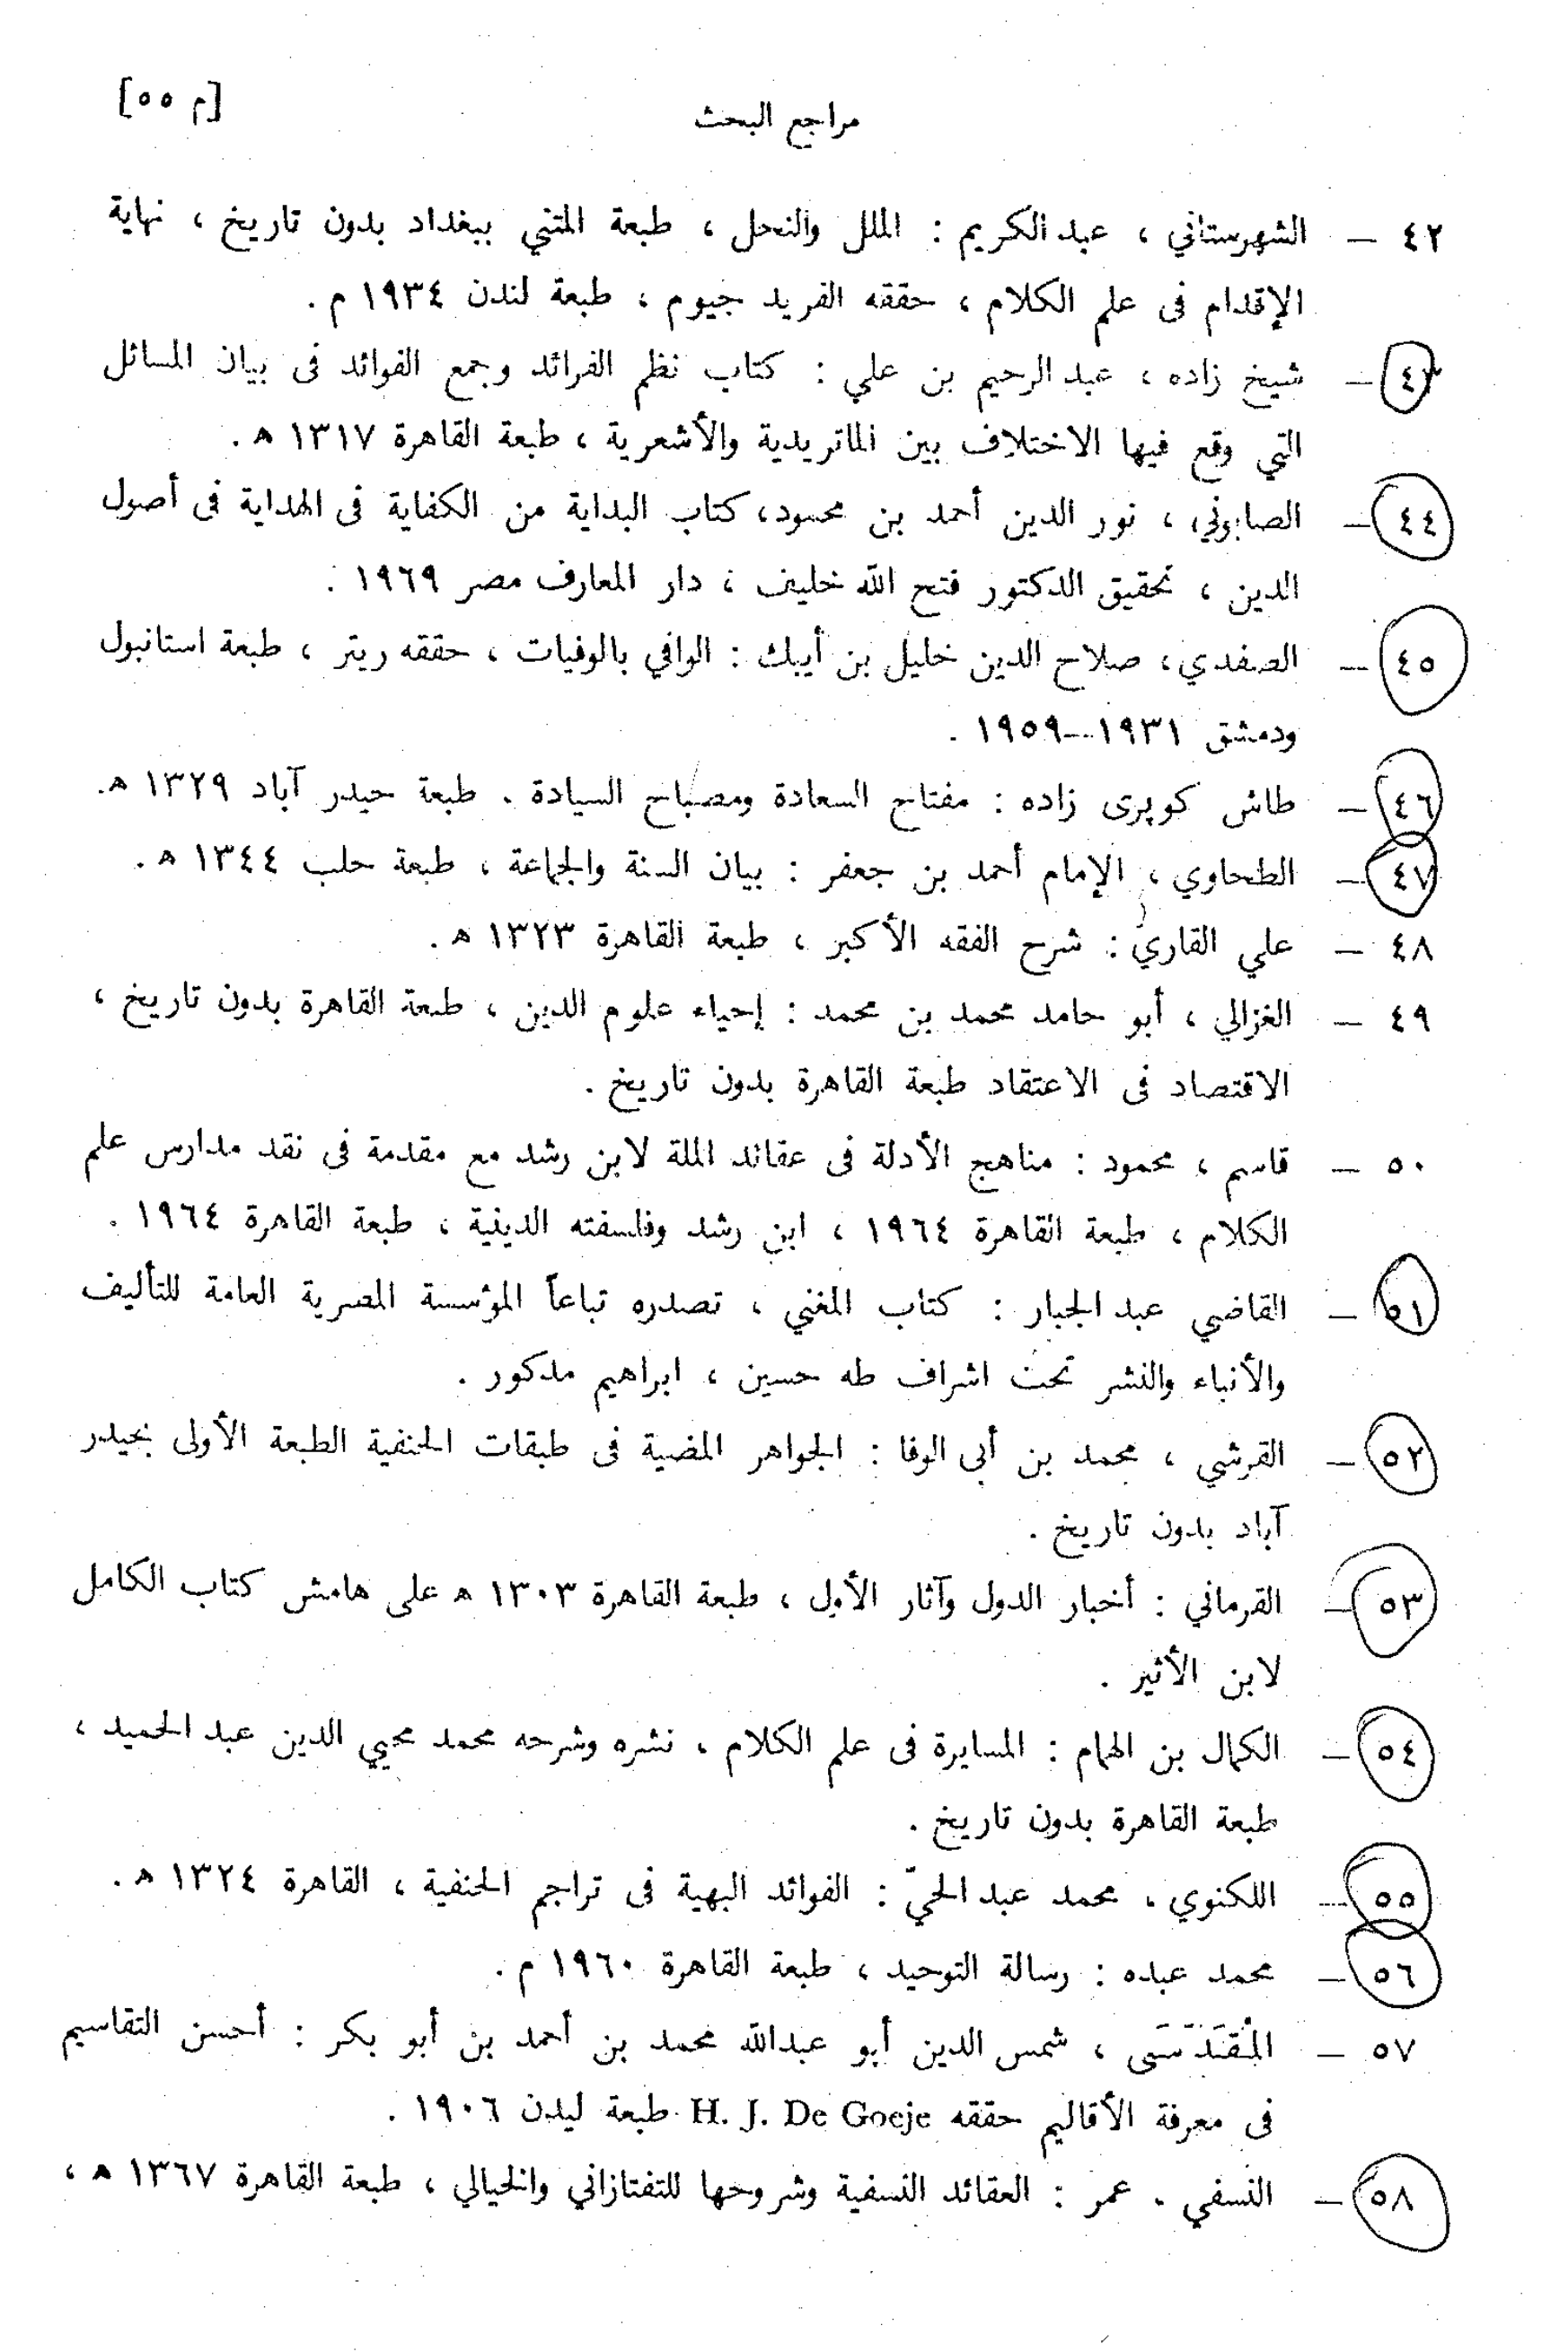 [م ٥٥]
مراجع البحث
٤٢ — الشهرستاني ، عبد الكريم : الملل والنحل ، طبعة المتني ببغداد بدون تاريخ ، نهاية
الإقدام فى علم الكلام ، حققه الفريد جيوم ، طبعة لندن ١٩٣٤ م .
٤٣ — شيخ زاده ، عبد الرحيم بن علي : كتاب نظم الفرائد وجمع الفوائد فى بيان المسائل
التي وقع فيها الاختلاف بين الماتريدية والأشعرية ، طبعة القاهرة ١٣١٧ ه .
٤٤ — الصابوني ، نور الدين أحمد بن محمود، كتاب البداية من الكفاية فى الهداية فى أصول
الدين ، تحقيق الدكتور فتح الله خليف ، دار المعارف مصر ١٩٦٩ .
٤٥ — الصفدي ، صلاح الدين خليل بن أيبك : الوافي بالوفيات ، حققه ريتر ، طبعة استانبول
ودمشق ١٩٣١—١٩٥٩ .
٤٦ — طاش كوپرى زاده : مفتاح السعادة ومصباح السيادة . طبعة حيدر آباد ١٣٢٩ ه.
٤٧ — الطحاوي ، الإمام أحمد بن جعفر : بيان السنة والجماعة ، طبعة حلب ١٣٤٤ ه .
٤٨ — علي القاريّ : شرح الفقه الأكبر ، طبعة القاهرة ١٣٢٣ ه .
٤٩ — الغزالي ، أبو حامد محمد بن محمد : إحياء علوم الدين ، طبعة القاهرة بدون تاريخ ،
الاقتصاد فى الاعتقاد طبعة القاهرة بدون تاريخ .
٥٠ — قاسم ، محمود : مناهج الأدلة فى عقائد الملة لابن رشد مع مقدمة فى نقد مدارس علم
الكلام ، طبعة القاهرة ١٩٦٤ ، ابن رشد وفلسفته الدينية ، طبعة القاهرة ١٩٦٤ .
٥١ — القاضي عبد الجبار : كتاب المغني ، تصدره تباعاً المؤسسة المصرية العامة للتأليف
والأنباء والنشر تحت اشراف طه حسين ، ابراهيم مدكور .
٥٢ — القرشي ، محمد بن أبى الوفا : الجواهر المضية فى طبقات الحنفية الطبعة الأولى بحيدر
آباد بدون تاريخ .
٥٣ — القرماني : أخبار الدول وآثار الأول ، طبعة القاهرة ١٣٠٣ ه على هامش كتاب الكامل
لابن الأثير .
٥٤ — الكمال بن الهمام : المسايرة فى علم الكلام ، نشره وشرحه محمد محيي الدين عبد الحميد ،
طبعة القاهرة بدون تاريخ .
٥٥ — اللكنوي ، محمد عبد الحيّ : الفوائد البهية فى تراجم الحنفية ، القاهرة ١٣٢٤ ه .
٥٦ — محمد عبده : رسالة التوحيد ، طبعة القاهرة ١٩٦٠ م .
٥٧ — المْقَدَّسَى ، شمس الدين أبو عبدالله محمد بن أحمد بن أبو بكر : أحسن التقاسيم
فى معرفة الأقاليم حققه H. J. De Goeje طبعة ليدن ١٩٠٦ .
٥٨ — النسفي . عمر : العقائد النسفية وشروحها للتفتازاني والخيالي ، طبعة القاهرة ١٣٦٧ ه ،